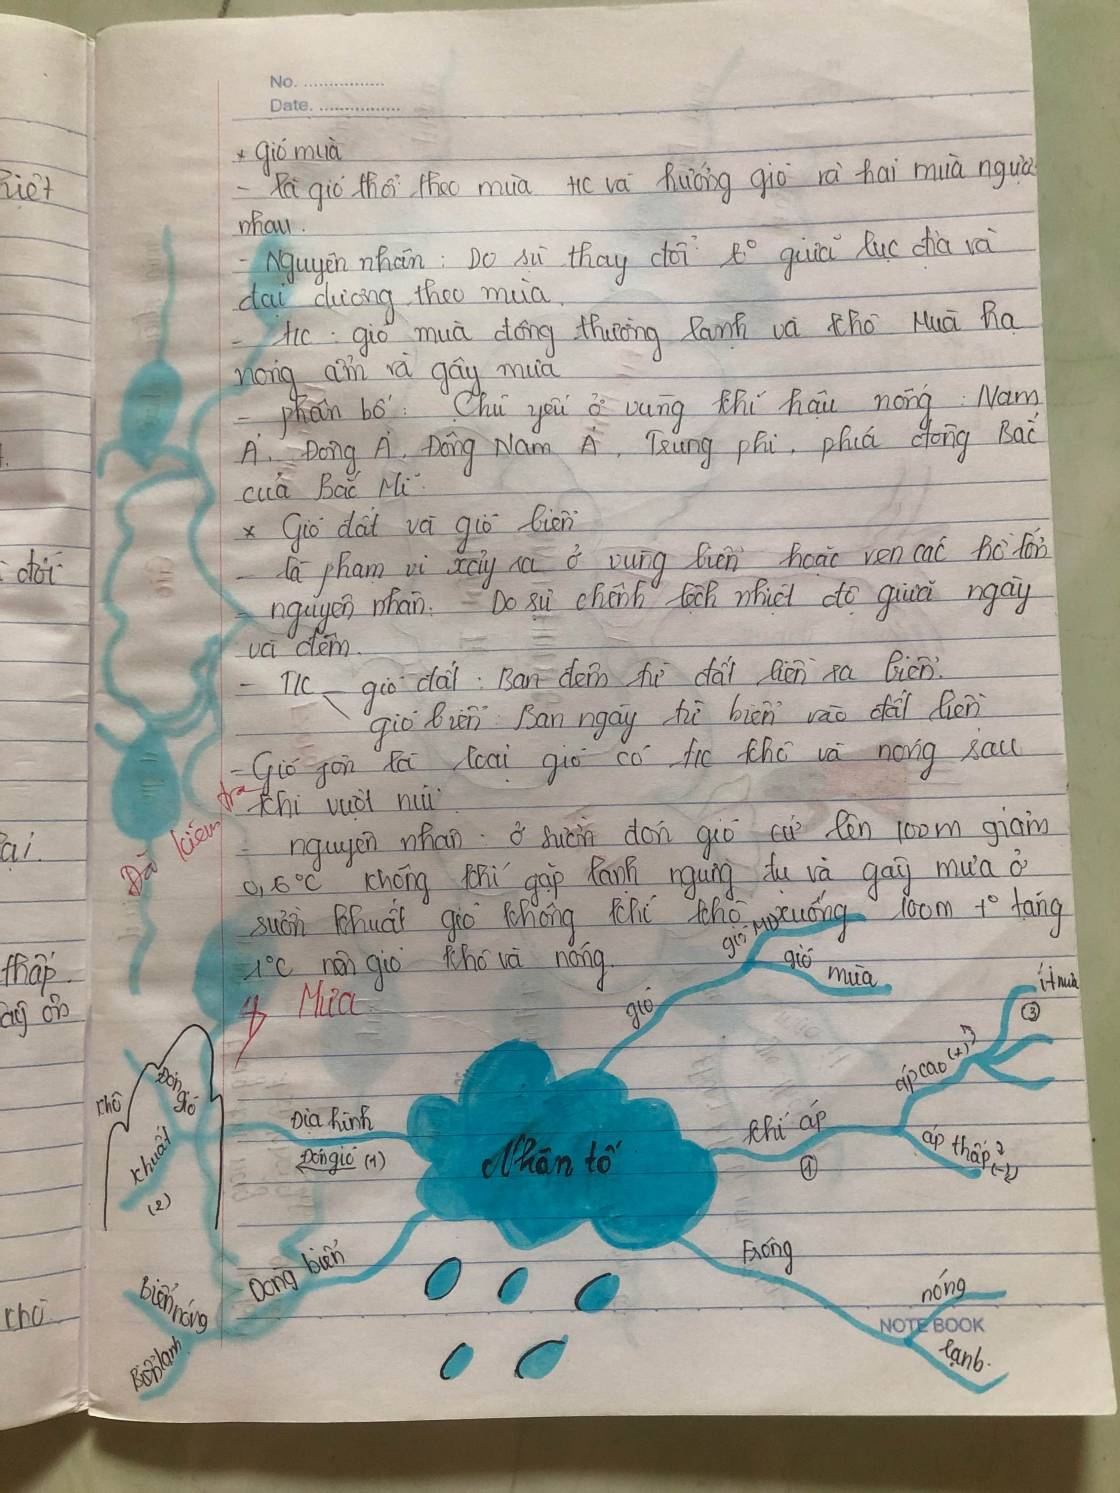 No. ................
Date. ................
* gió mùa
- là gió thổi theo mùa t/c và hướng gió và hai mùa ngược
nhau.
- Nguyên nhân: Do sự thay đổi t° giữa lục địa và
đại dương theo mùa.
- t/c: gió mùa đông thường lạnh và khô Mùa hạ
nóng ẩm và gây mưa
- phân bố: Chủ yếu ở vùng khí hậu nóng: Nam
Á, Đông Á, Đông Nam Á, Trung phi, phía đông Bắc
của Bắc Mĩ.
* Gió đất và gió biển
- là phạm vi xảy ra ở vùng biển hoặc ven các hồ lớn
- nguyên nhân: Do sự chênh lệch nhiệt độ giữa ngày
và đêm.
- T/C gió đất: Ban đêm từ đất liền ra biển.
gió biển: Ban ngày từ biển vào đất liền
- Gió fơn là loại gió có t/c khô và nóng sau
khi vượt núi.
- nguyên nhân: ở sườn đón gió cứ lên 100m giảm
0,6°C không khí gặp lạnh ngưng tụ và gây mưa ở
sườn khuất gió không khí khô xuống 100m t° tăng
1°C nên gió khô và nóng.
Đã kiểm tra
Mưa
Nhân tố
gió
gió MD
gió mùa
khí áp
①
áp cao (+)
ít mưa
③
áp thấp
(-)
Frông
nóng
lạnh.
Địa hình
Đón gió (1)
Đón gió
khô
khuất
(2)
Dòng biển
Biển nóng
Biển lạnh
NOTE BOOK
iệt
đới
ại.
thấp
ây ôn
khô